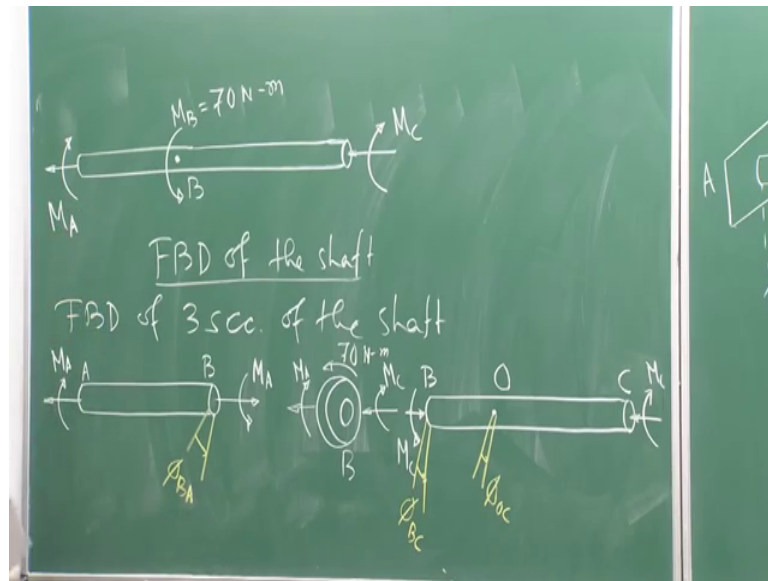 M_B = 70 N-m
M_C
M_A
B
A
FBD of the shaft
FBD of 3 sec. of the shaft
M_A A B M_A
M_A 70 N-m M_C
B
B O C M_C
M_C
φ_BA
φ_BC
φ_OC